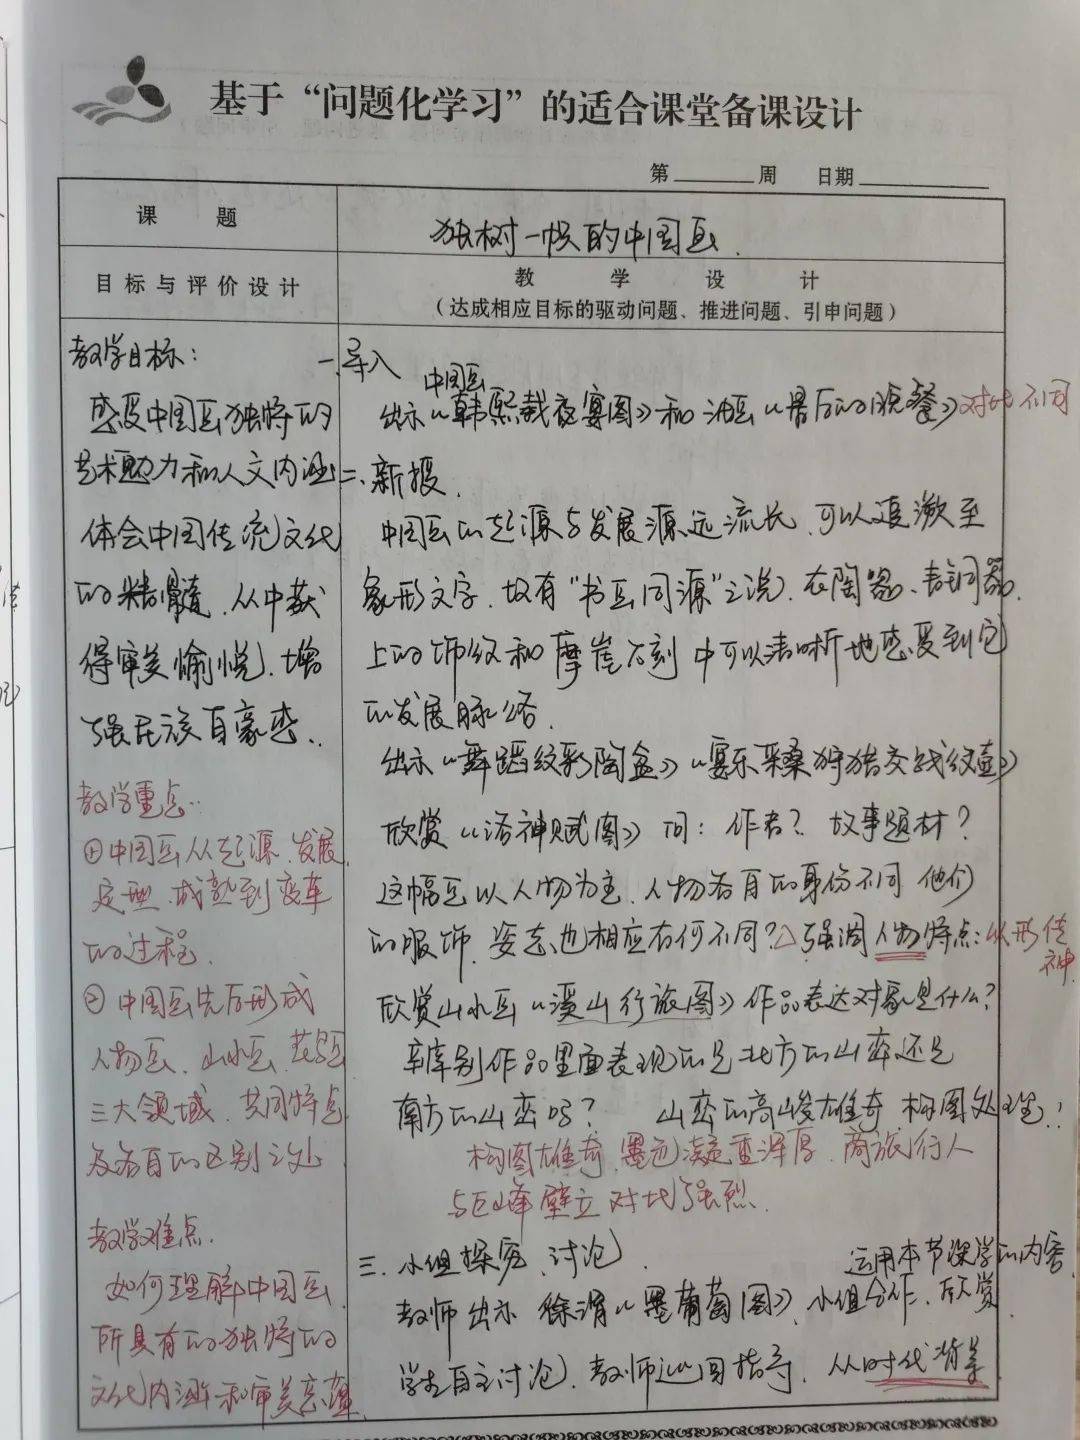 基于“问题化学习”的适合课堂备课设计
第 周 日期
课 题
独树一帜的中国画
目标与评价设计
教 学 设 计
（达成相应目标的驱动问题、推进问题、引申问题）
教学目标：
感受中国画独特的
艺术魅力和人文内涵
体会中国传统文化
的精髓，从中获
得审美愉悦，增
强民族自豪感．
教学重点：
①中国画从起源、发展、
定型、成熟到变革
的过程．
② 中国画先后形成
人物画、山水画、花鸟画
三大领域、共同特点
及各自的区别之处
教学难点．
如何理解中国画
所具有的独特的
文化内涵和审美意蕴
一、导入
中国画
出示《韩熙载夜宴图》和油画《最后的晚餐》对比不同
二、新授．
中国画的起源与发展源远流长，可以追溯至
象形文字，故有“书画同源”之说，在陶器、青铜器
上的饰纹和摩崖石刻中可以清晰地感受到它
的发展脉络．
出示《舞蹈纹彩陶盆》《宴乐采桑狩猎交战纹壶》
欣赏《洛神赋图》问：作者？故事题材？
这幅画以人物为主，人物各自的身份不同 他们
的服饰、姿态也相应有何不同？△强调人物特点：以形传
神
欣赏山水画《溪山行旅图》作品表达对象是什么？
辨别作品里面表现的是北方的山峦还是
南方的山峦吗？ 山峦的高峻雄奇 构图处理：
构图雄奇，墨色凝重浑厚，商旅行人
与巨峰壁立对比强烈．
三、小组探究、讨论
运用本节课学的内容
教师出示 徐渭《墨葡萄图》，小组合作、欣赏
学生自主讨论，教师巡回指导，从时代背景